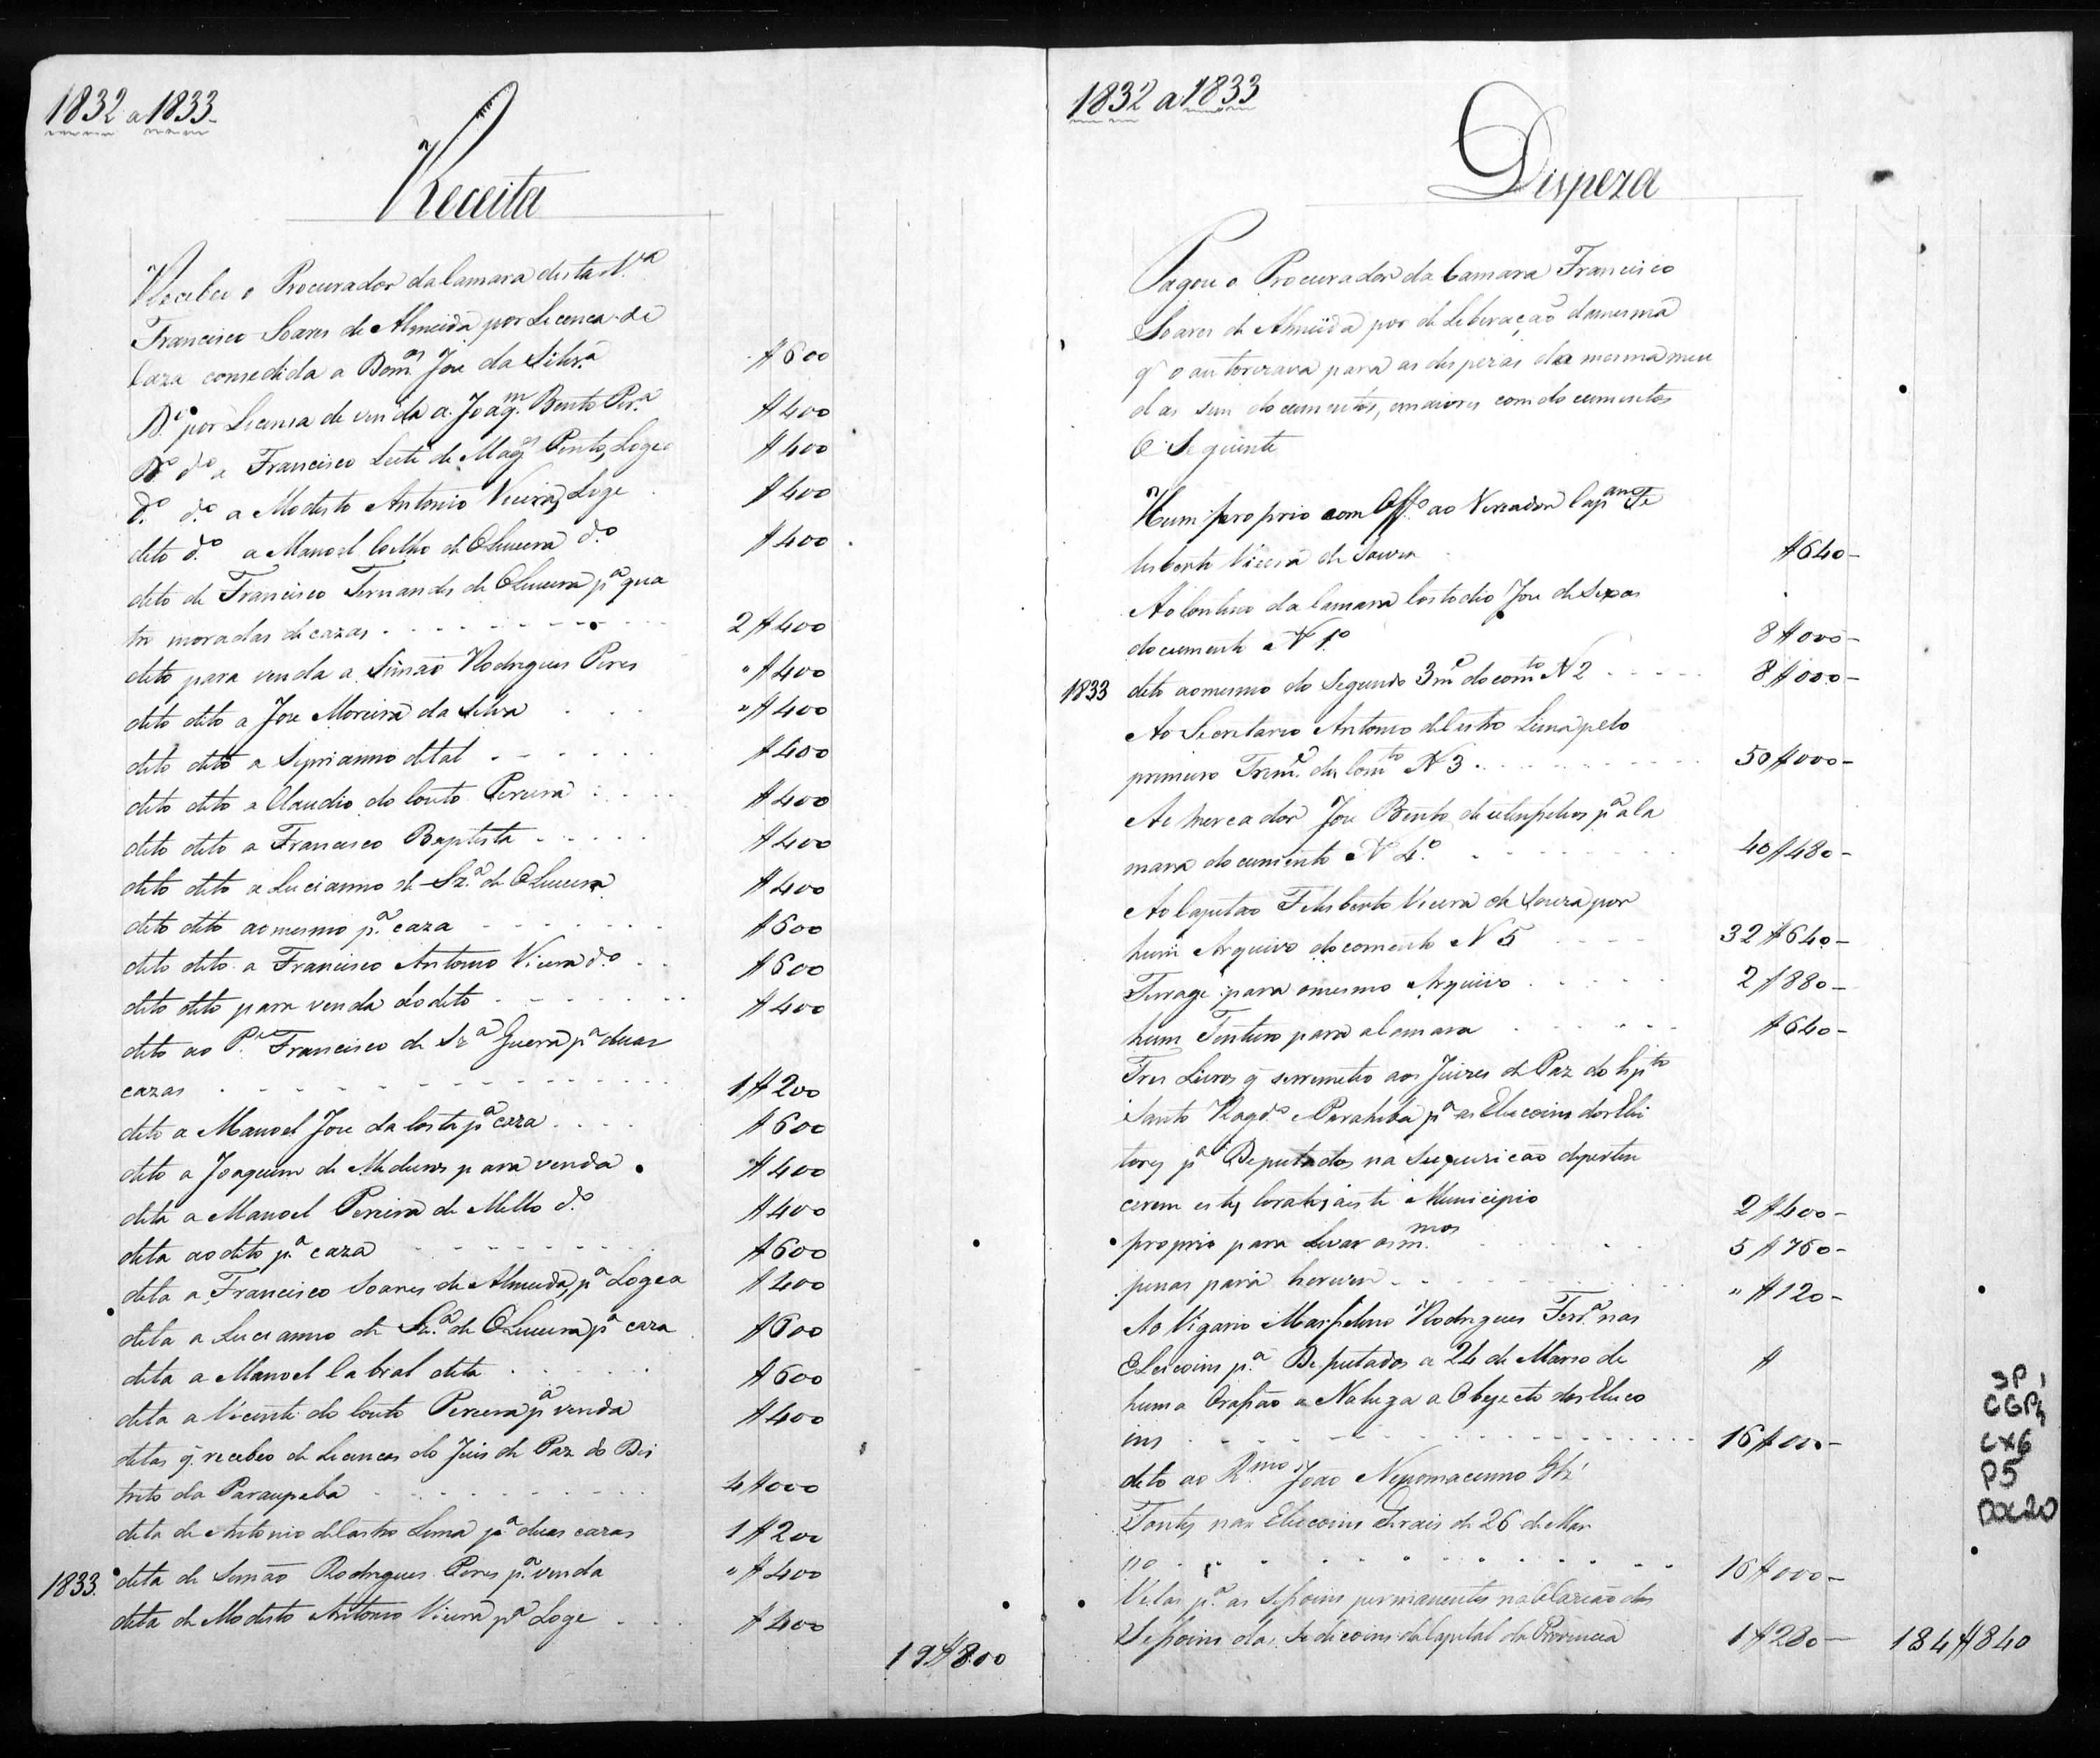 1832 a 1833
Receita
Recebeo o Procurador da Camara desta V.ª
Francisco Soares de Almeida por Licenca de
Caza consedida a Dom.os Joze da Silv.ª $600
D.º por Licensa de venda a Joaq.m Bento Per.ª $400
D.º d.º a Francisco Leite de Mag.es Pinto, Logea $400
d.º d.º a Modesto Antonio Vieira, Loge $400
dito d.º a Manoel Coelho de Oliveira d.º $400
dito de Francisco Fernandes de Oliveira p.ª qua
tro moradas de cazas 2$400
dito para venda a Simaõ Rodrigues Peres " $400
dito dito a Joze Moreira da Silva " $400
dito dito a Siprianno de tal $400
dito dito a Claudio do Couto Pereira $400
dito dito a Francisco Baptista $400
dito dito a Lucianno de Sz.ª de Oliveira $400
dito dito ao mesmo p.ª caza $600
dito dito a Francisco Antonio Vieira d.º $600
dito dito para venda do dito $400
dito ao P.e Francisco de Sz.ª Guerra p.ª duas
cazas 1$200
dito a Manoel Joze da Costa p.ª caza $600
dito a Joaquim de Medeiros para venda $400
dita a Manoel Pereira de Mello d.º $400
dita ao dito p.ª caza $600
dita a Francisco Soares de Almeida, p.ª Logea $400
dita a Lucianno de Sz.ª de Oliveira p.ª caza $600
dita a Manoel Cabral dita $600
dita a Vicente do Couto Pereira p.ª venda $400
ditas q̃ recebeo de Licencas do Juis de Paz do Dis
trito da Paraupeba 4$000
dita de Antonio de Castro Lima p.ª duas cazas 1$200
1833. dita de Simaõ Rodrigues Peres p.ª venda " $400
dita de Modesto Antonio Vieira p.ª Loge $400
19$800
1832 a 1833
Dispeza
Pagou o Procurador da Camara Francisco
Soares de Almeida por deliberaçaõ da mesma
q̃ o autorizava para as despezas da mesma meu
das sem documentos, emaiores com documentos
O Seguinte
Hum proprio com Off.º ao Vereador Cap.am Fe
lisberto Vieira de Souza $640
Ao Continuo da Camara Costodio Joze de Seixas
documento N 1º 8$000
1833 dito ao mesmo do Segundo 3m.e docom.to N 2 8$000
Ao Secretario Antonio de Castro Lima pelo
primeiro Trim.e docom.to N 3 50$000
Ao mercador Joze Bento de utensilios p.ª a Ca
mara documento N 4º 40$480
Ao Capitaõ Felisberto Vieira de Souza por
hum Arquivo docomento N 5 32$640
Ferrage para o mesmo Arquivo 2$880
hum Tinteiro para a Camara $640
Tres Livros q̃ se remeteo aos Juizes de Paz do Sp.to
Santo e Parahiba p.ª as Eleicoins dos Elei
tores p.ª Deputados na Supuzicaõ de perten
cerem estes a este Municipio 2$400
proprio para Levar os m.mos 5$760
penas para " $120
Ao Vigario Rodrigues Ferr.ª nas
Eleicoins p.ª Deputados a 24 de Março de $
huma Orasaõ a Objecto das Eleico
ins 16$000
dito ao R.mo Joaõ Nepomaceno
Fontes nas Eleicoins Gerais de 26 de Mar
ço 16$000
Velas p.ª as Sesoins permanentes na das
Sesoins das Sedicoins da Capital da Provincia 1$280
184$840
SP,
CGP4
CX6
P5
DOC20